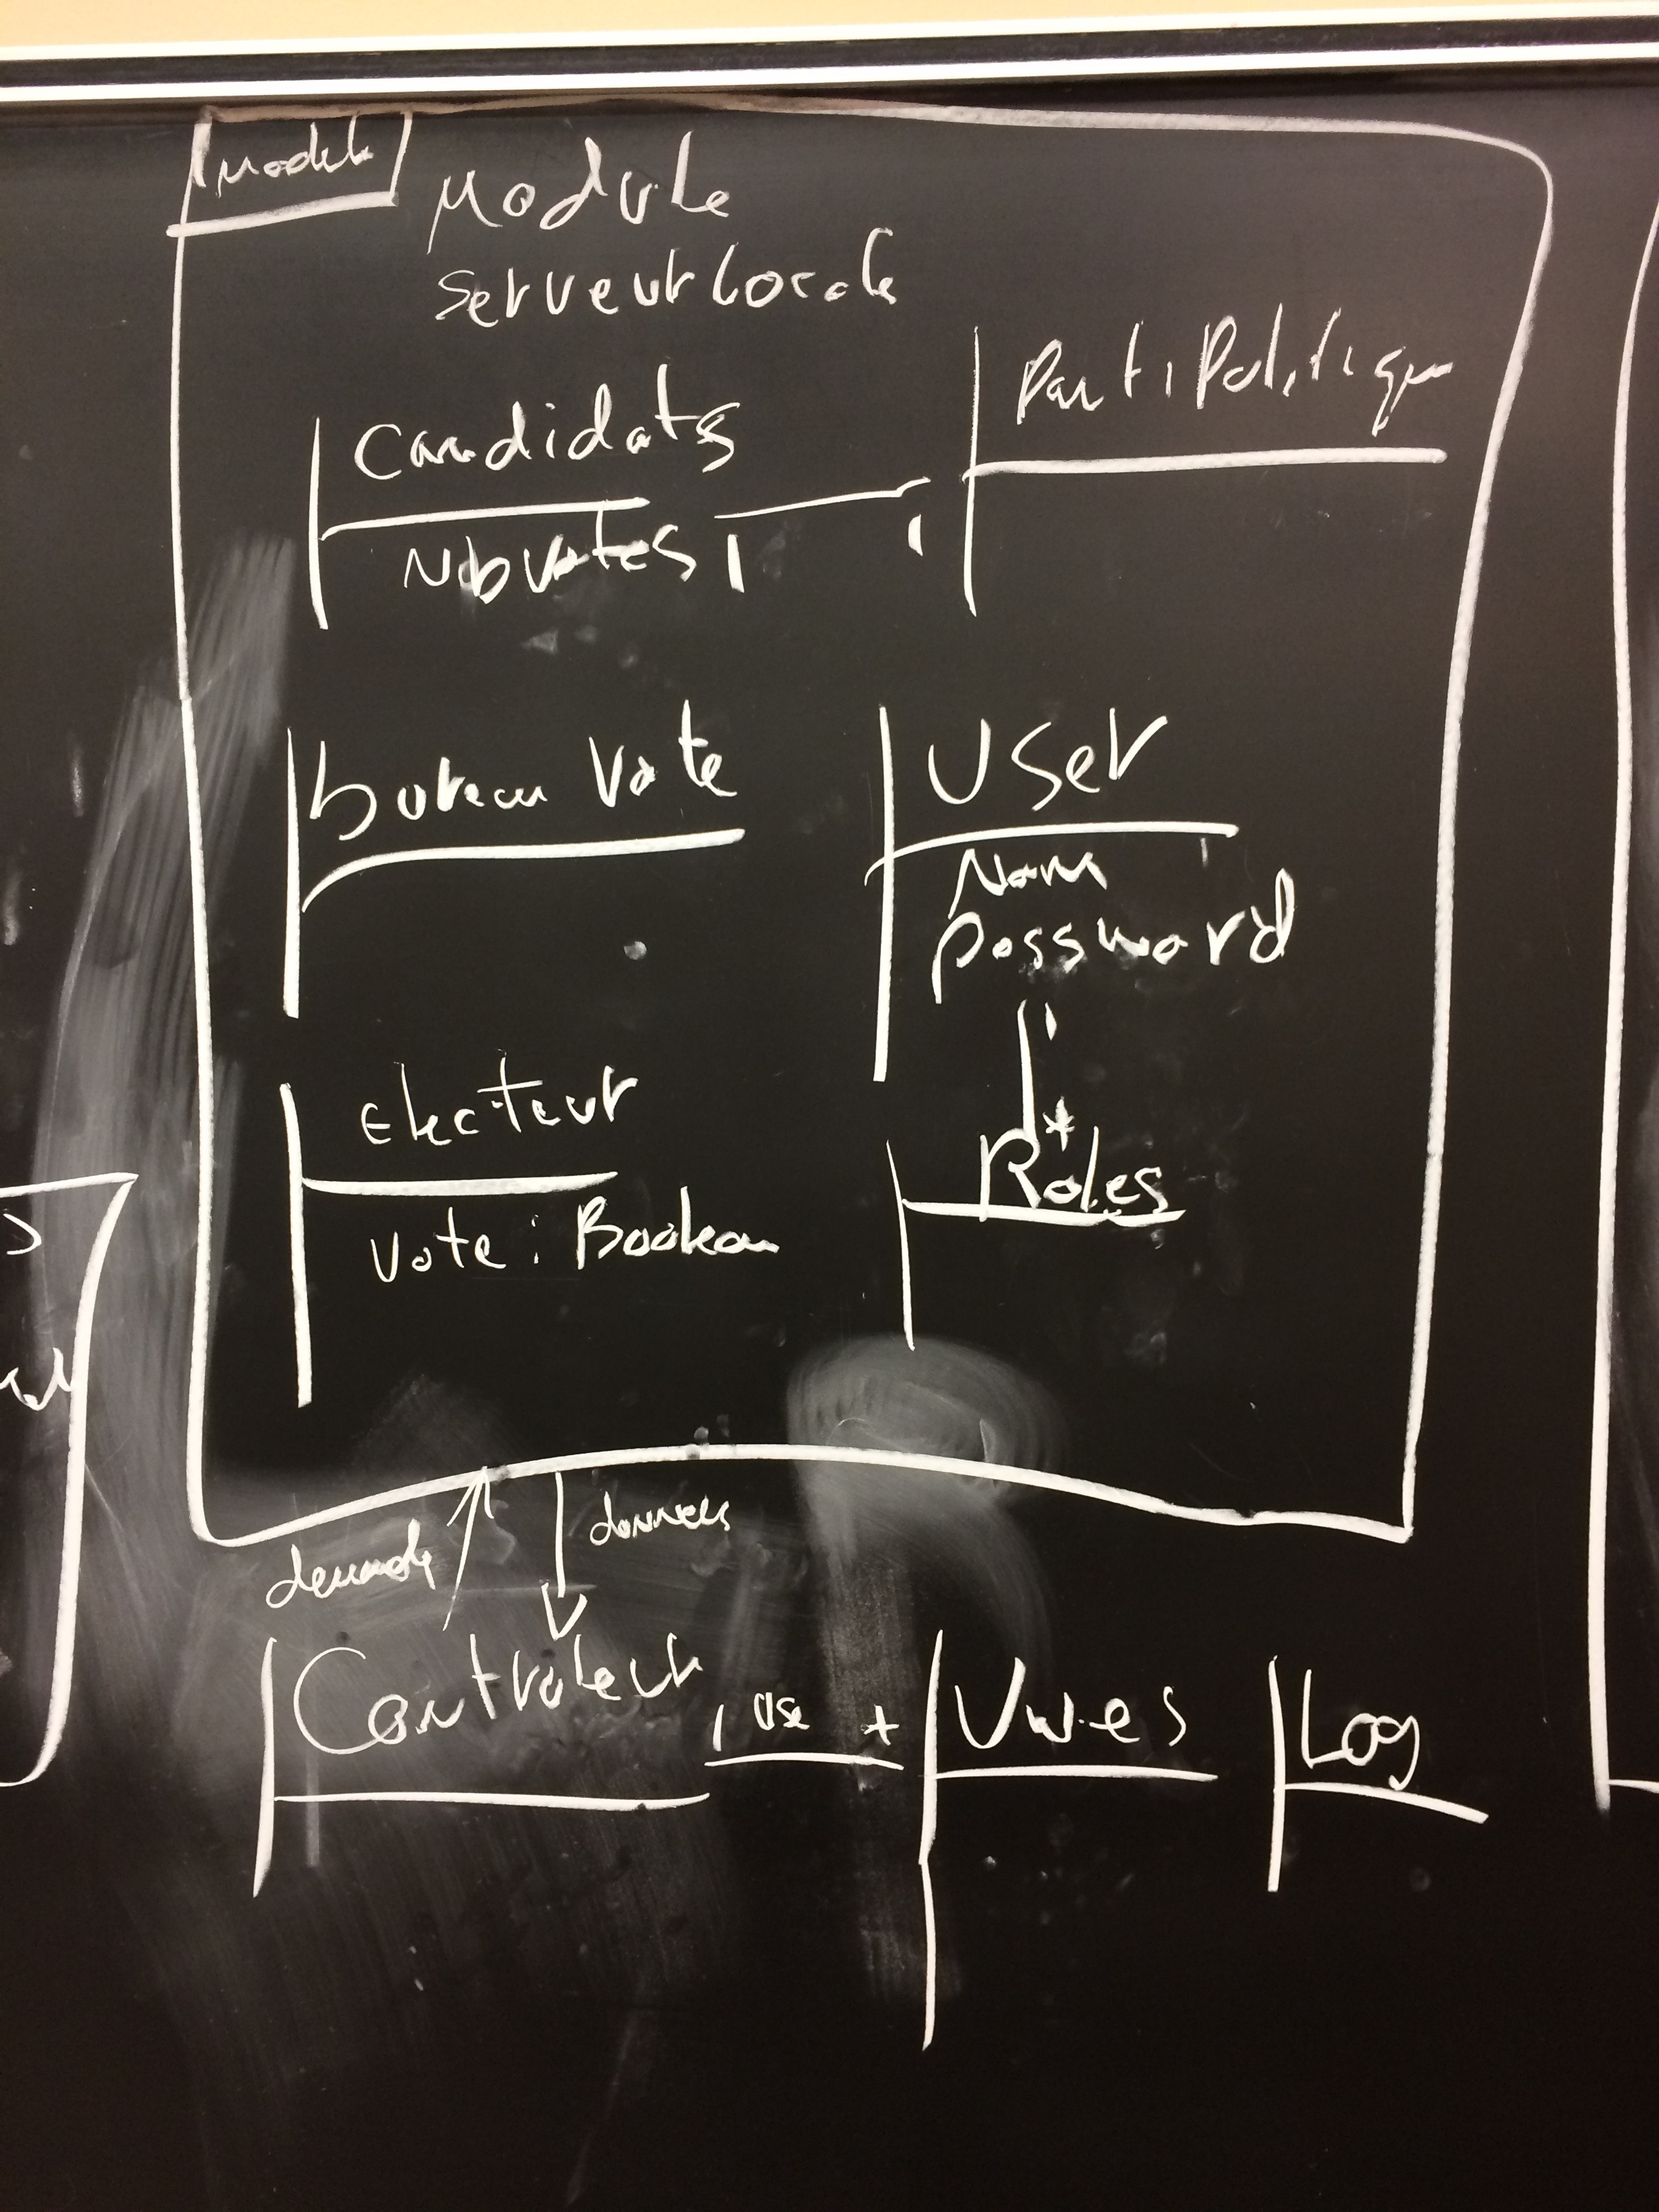 Modele
Module
Serveur Locale
Candidats
Nb votes
1
1
Parti Politique
bureau Vote
User
Nom
password
1
*
Electeur
Vote : Boolean
Roles
demande
données
Controleur
1 use +
Vues
Log